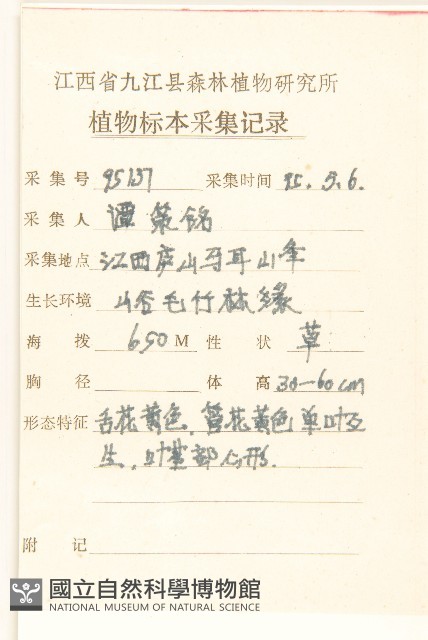 江西省九江县森林植物研究所
植物标本采集记录
采集号 95137 采集时间 95.5.6.
采集人 谭策铭
采集地点 江西庐山马耳山
生长环境 山谷毛竹林缘
海拨 650 M 性状 草
胸径 体高 30-60cm
形态特征 舌花黄色,管花黄色单叶互
生,叶基部心形.
附记
國立自然科學博物館
NATIONAL MUSEUM OF NATURAL SCIENCE